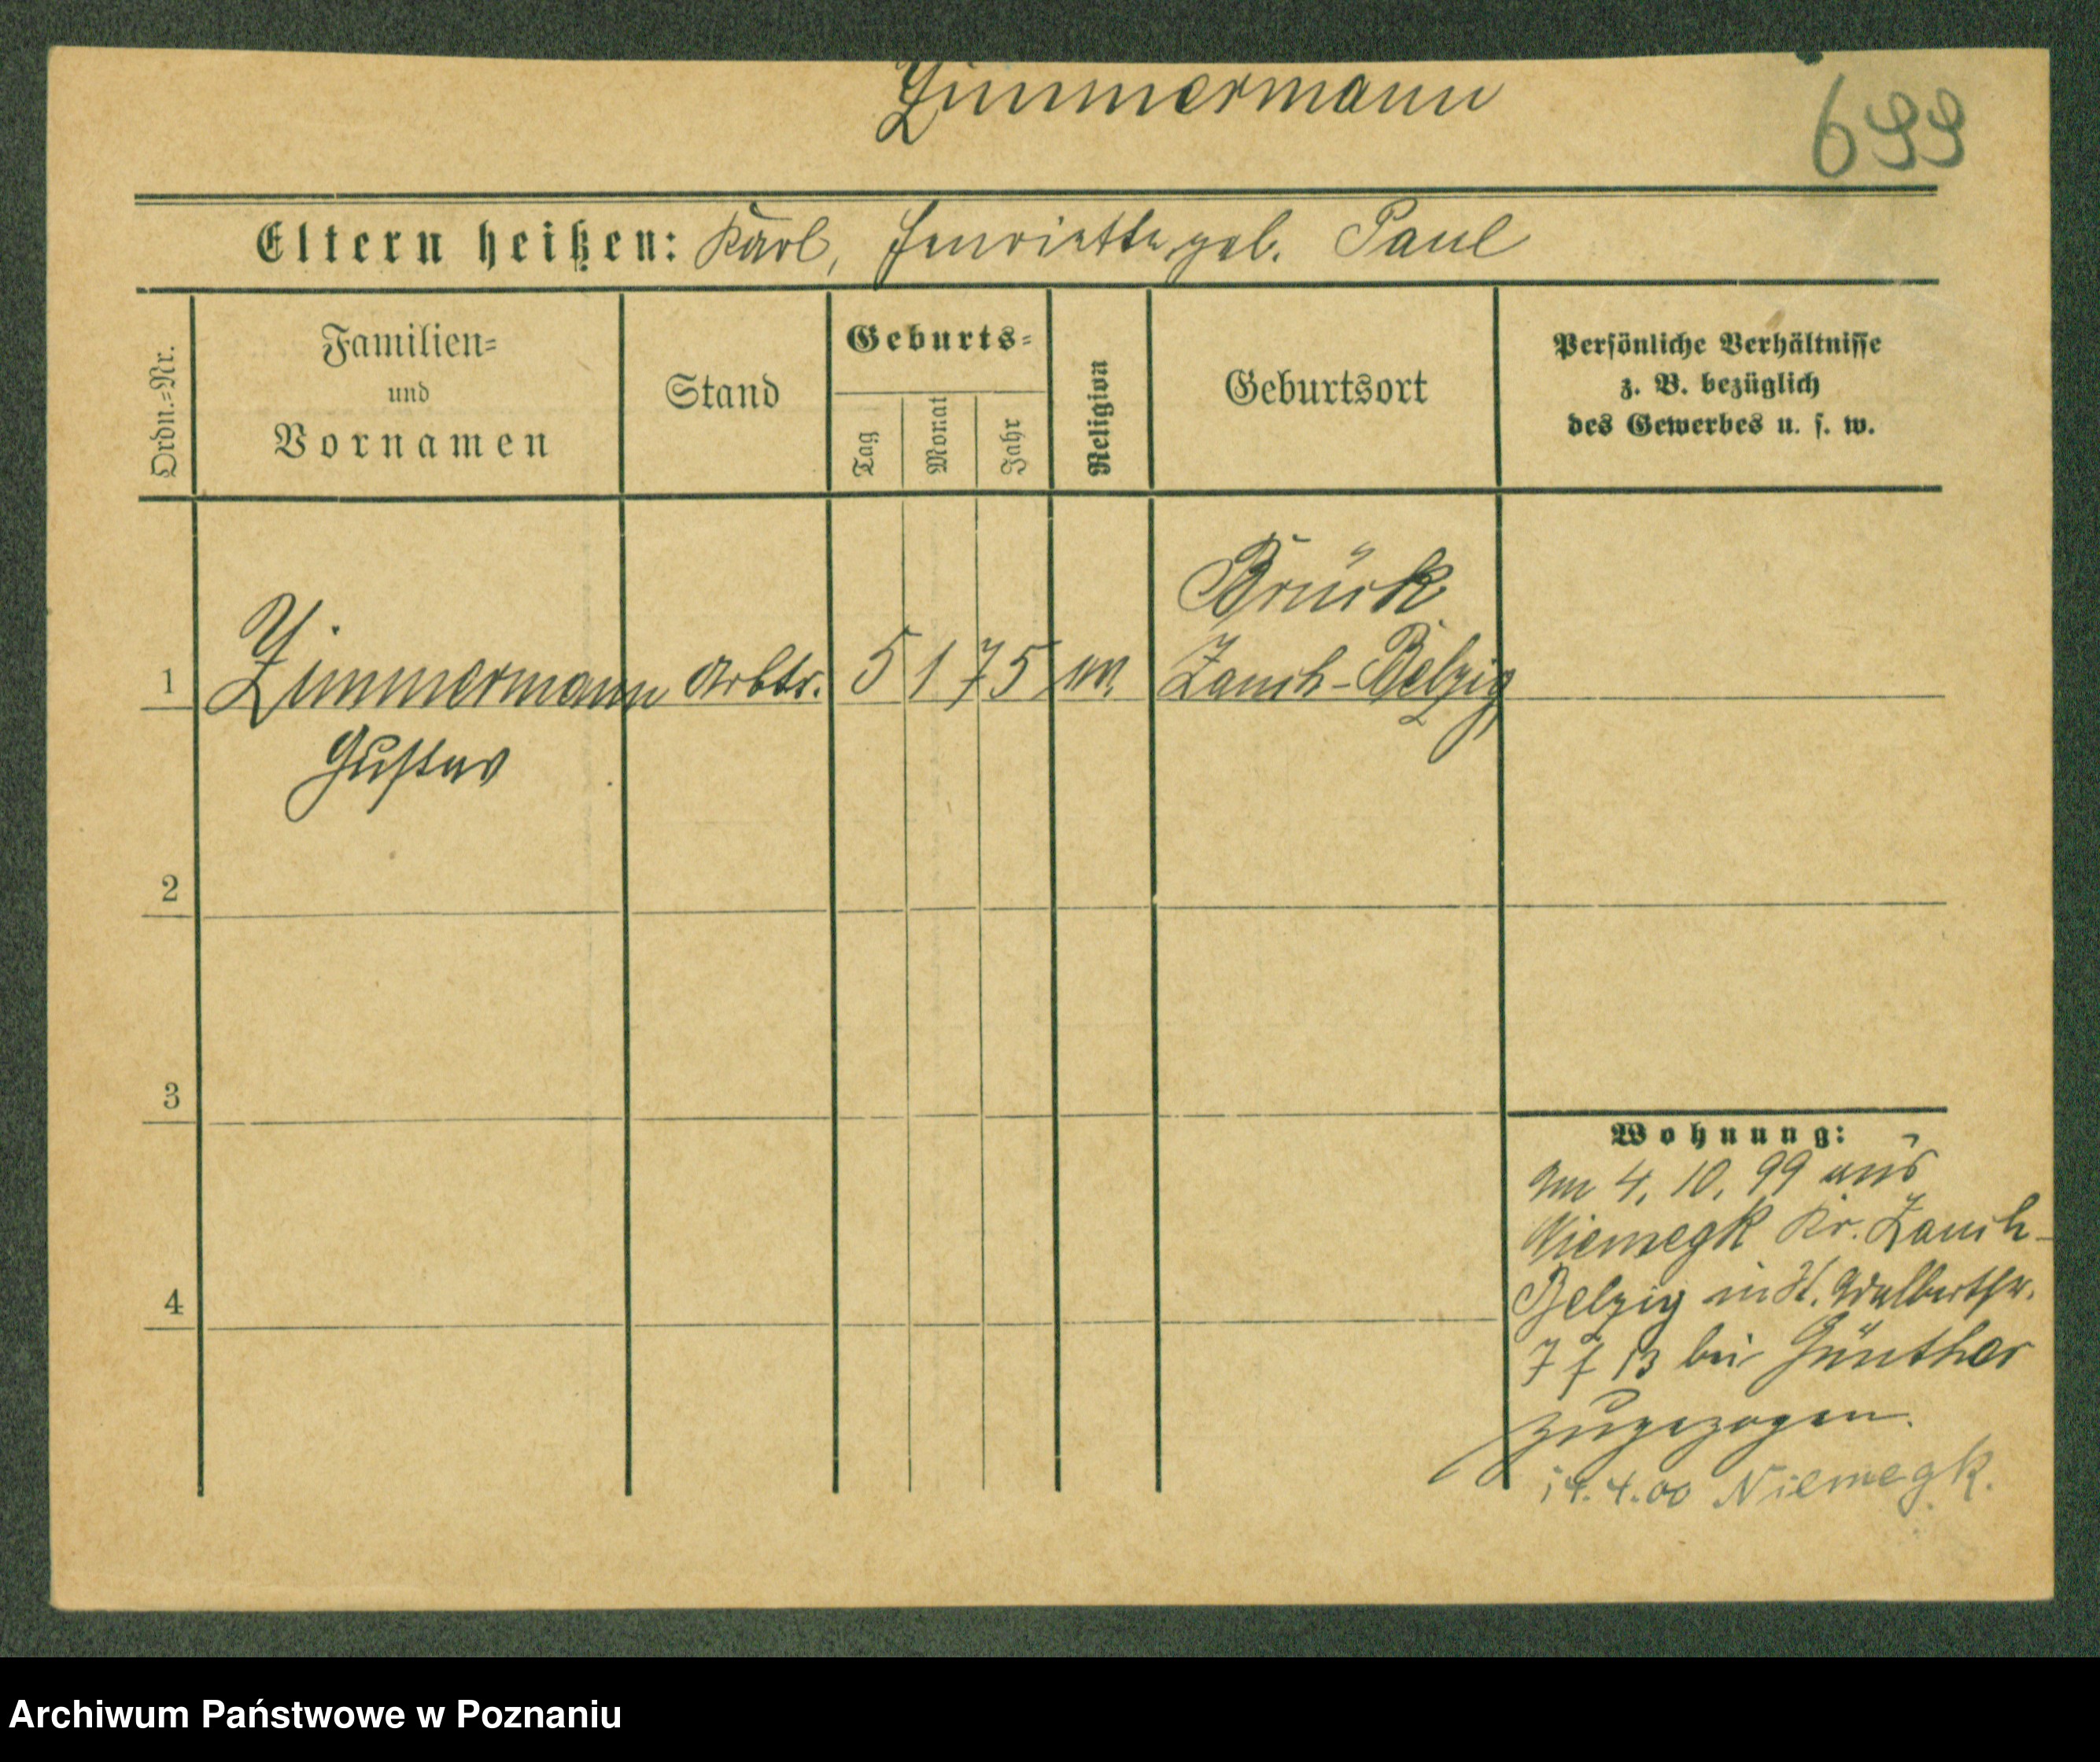 Zimmermann
699
Eltern heißen: Karl, Henriette geb. Paul
Ordn.=Nr.
Familien=
und
Vornamen
Stand
Geburts=
Tag
Monat
Jahr
Religion
Geburtsort
Persönliche Verhältnisse
z. B. bezüglich
des Gewerbes u. s. w.
Brück
1 Zimmermann Arbtr. 5 1 75 Zauch-Belzig
Gustav
2
3
Wohnung:
Am 4. 10. 99 aus
Niemegk Kr. Zauch-
Belzig in St. Adalbertstr.
7 f 13 bei Günther
zugezogen.
4
14.4.00 Niemegk.
Archiwum Państwowe w Poznaniu